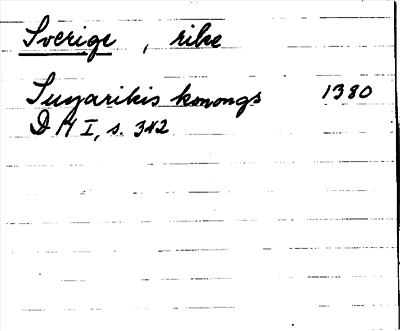 Sverige, rike
Suyarikis konongs 1380
D H I, s. 342